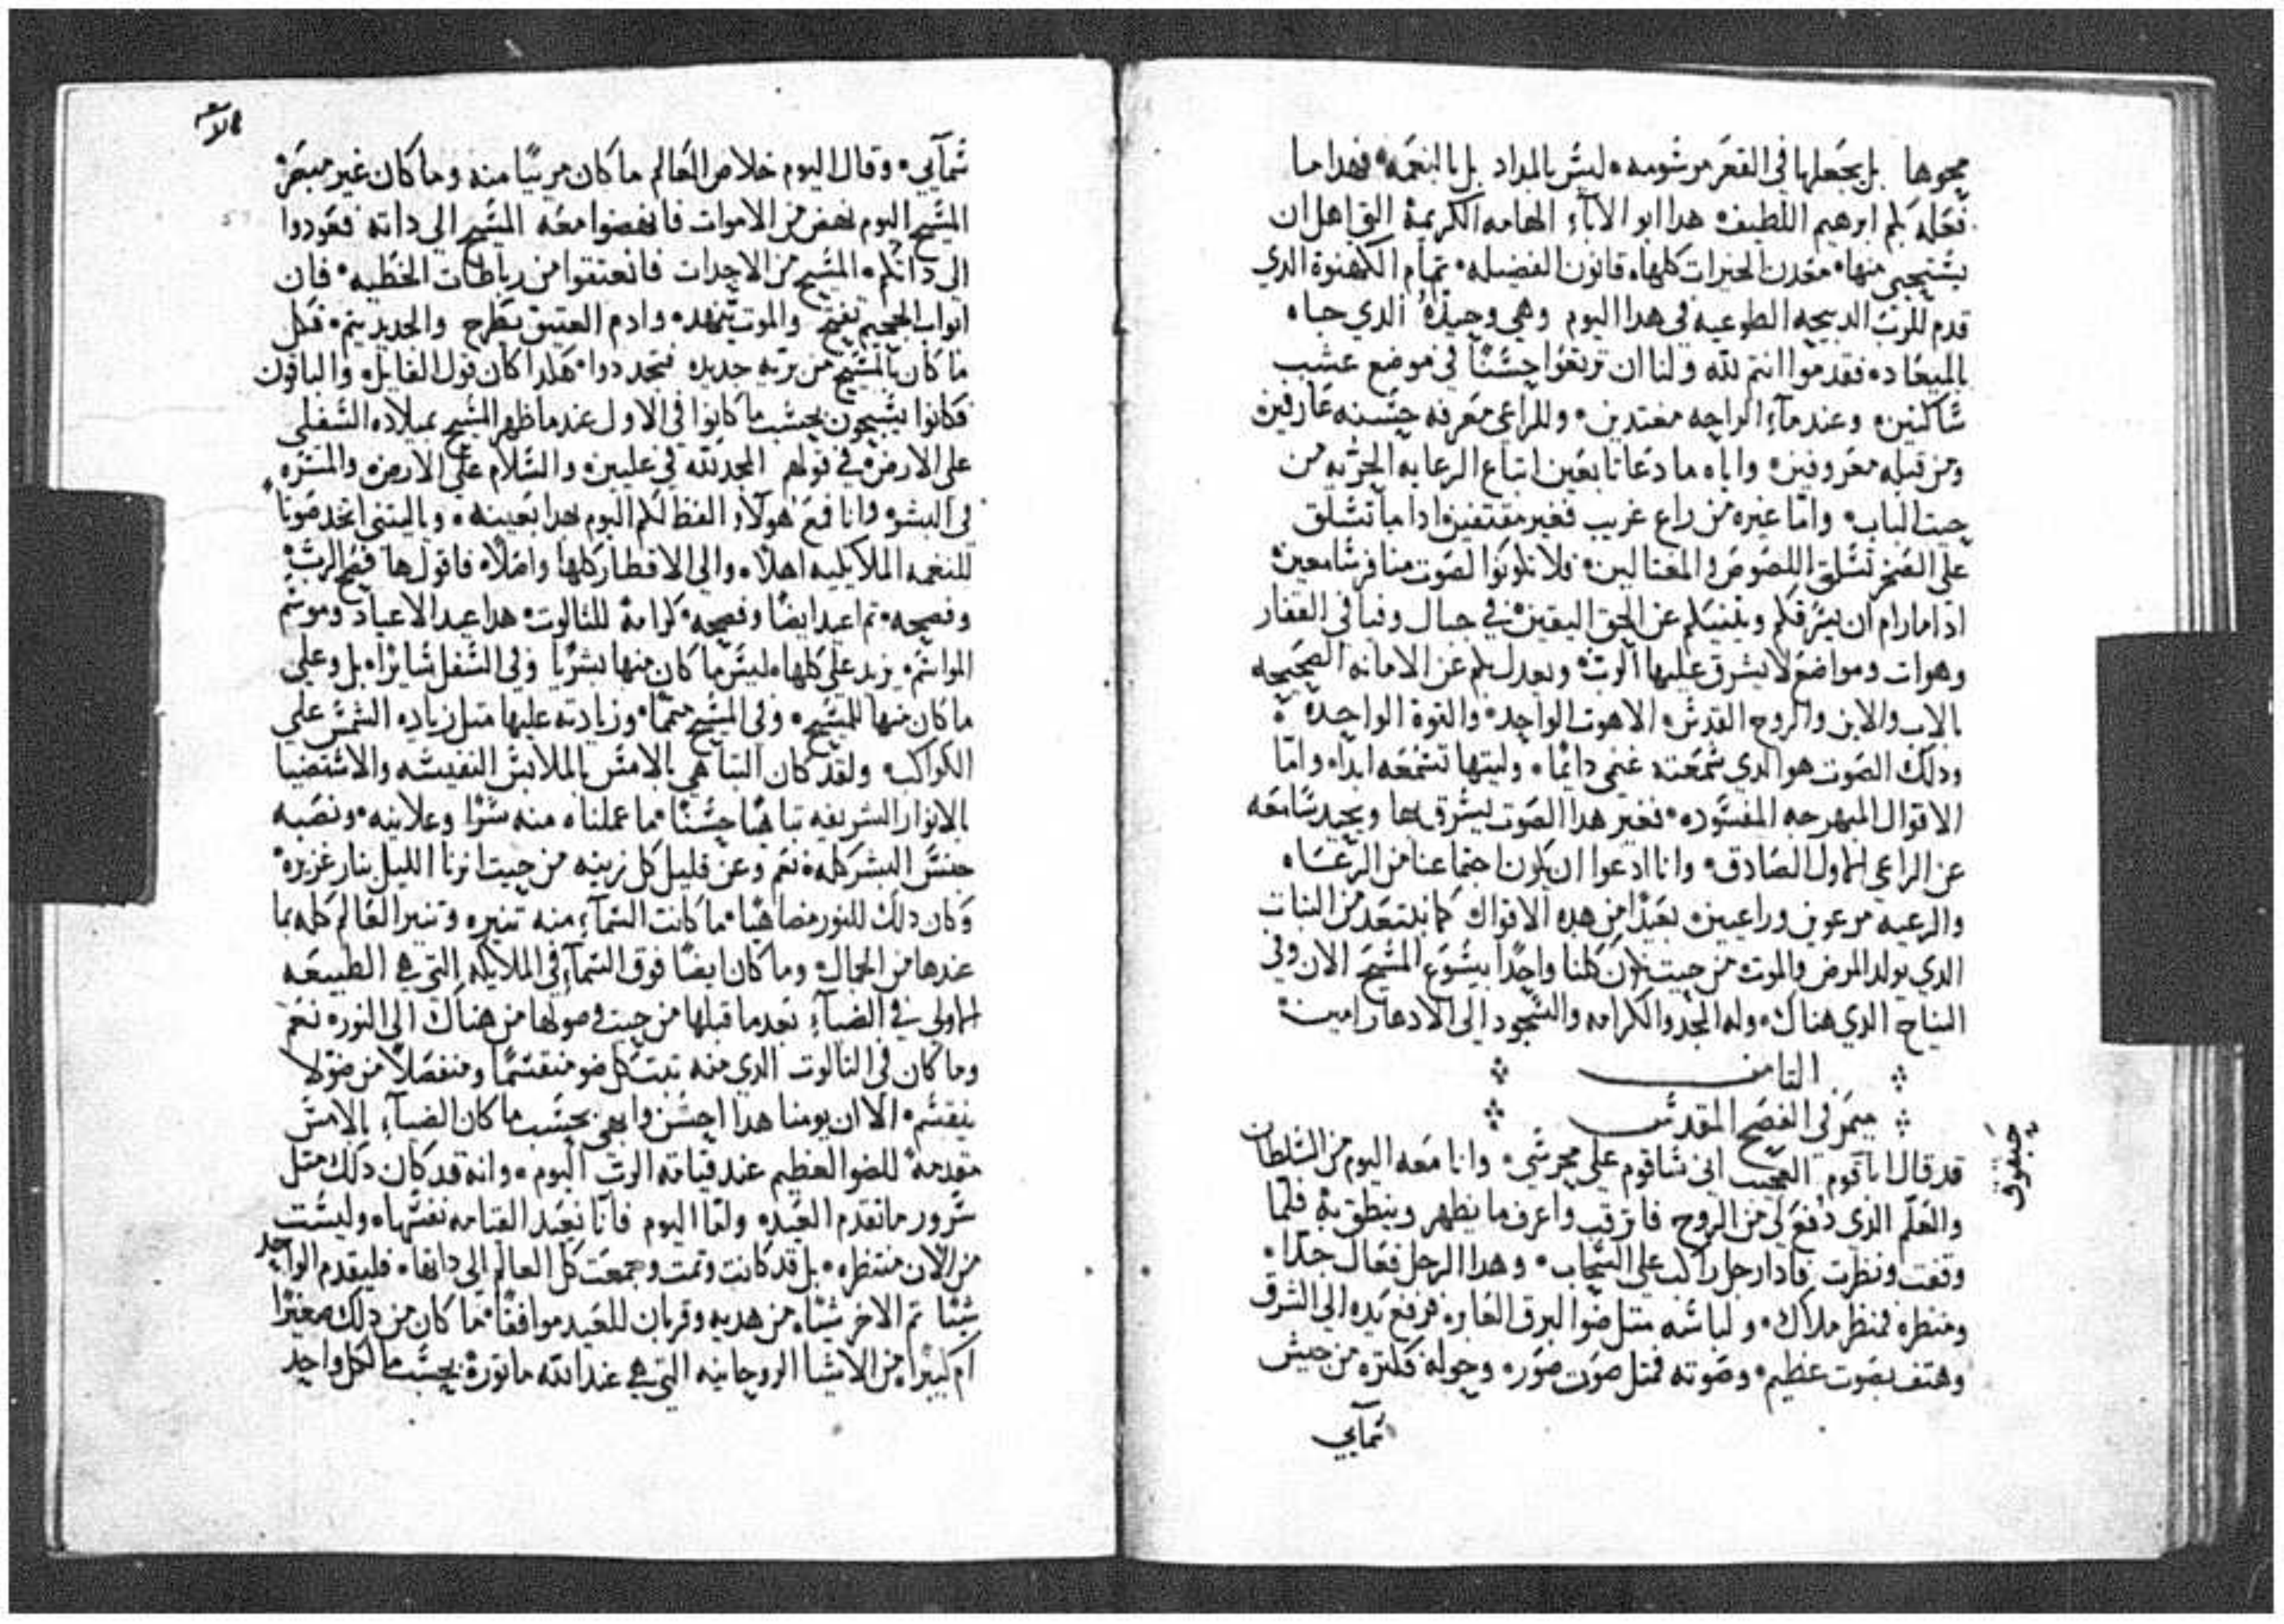 يمحوها بل يجعلها في القعر مرشومه ليش بالمداد بل بالنعمه فهدا ما
فعله بكم ابرهيم اللطيف هدا ابو الاباء الهامه الكريمة التي اهل ان
يشتحيى منها معدن الخيرات كلها قانون الفضيله تمام الكهنوة الدي
قدم للرب الدبيحه الطوعيه في هدا اليوم وهي وحيده الدي حباه
بالميعاد فقدموا انتم لله ولنا ان ترتعوا حشنًا في موضع عشب
شاكنين وعند مآء الراحه مغتدين وللراعي معرفه حشنه عارفين
ومن قبله معروفين واياه ما دعا تابعين اتباع الرعايه الحريه من
حيت الباب وامّا غيره من راع غريب فغير مقتفين ادا ما تشلق
على الصخر تشلق اللصوص والمغتالين فلا تكونوا لصوت منافر شامعين
ادا ما رام ان يشرقكم ويفشكم عن الحق اليقين في جبال وفيافي القفار
وهوات ومواضع لا يشرق عليها الرب ويعدل بكم عن الامانه الصحيحه
بالاب والابن والروح القدش الاهوت الواحد والقوة الواحده
ودلك الصوت هو الدي شمعته غنمي دائمًا وليتها تشمعه ابدا وامّا
الاقوال المبهرجه المفشوده فغير هدا الصوت يشرق بها ويحيد شامعه
عن الراعي الاول الصادق وانا ادعوا ان يكون اجتماعنا من الرعاه
والرعيه مرعوين وراعيين بعيدًا من هده الاقوال كما نبتعد من النبات
الدي يولد المرض والموت من حيت ان كلنا واحدًا بيشوع المشيح الان وفي
النياح الدي هناك وله المجد والكرامه والشجود الى الادهار امين
التامن
ميمر في الفصح المقدش
حبقوق
قد قال اباقوم العجيب اني شاقوم على محرشي وانا معه اليوم من الشلطان
والعلم الدي دُفع لي من الروح فاترقب واعرف ما يظهر وينطق به فلمّا
وقفت ونظرت فادا رجل راكب على الشحاب وهدا الرجل فعال جدًا
ومنظره كمنظر ملاك ولباشه متل ضوا البرق العابر فرفع يده الى الشرق
وهتف بصوت عظيم وصوته كمتل صوت صور وحوله فكتره من جيش
شمآيي
شمآيي وقال اليوم خلاص العالم ما كان مرييًا منه وما كان غير مبصر
المشيح اليوم نهض من الاموات فانهضوا معه المشيح الى داته فعودوا
الى داتكم المشيح من الاجدات فانعتقوا من رباطات الخطيه فان
ابواب الجحيم تفتح والموت يتمهد وادم العتيق يطرح والجديد يتم فكل
ما كان بالمشيح من بريه جديده فتجددوا هكدا كان قول القايل والباقون
فكانوا يشبحون بحشب ما كانوا في الاول عندما ظهر المشيح بميلاده الشفلي
على الارض في قولهم المجد لله في عليين والشلام على الارض والمشره
في البشر وانا فمع هولاء الفظ لكم اليوم بهدا بعينه وياليتني اتخد صوتًا
للنغمه الملايكيه اهلا والى الاقطار كلها واصلا فاقول ها فصح الرب
وفصحه تم اعيد ايضًا وفصحه كرامة للتالوت هدا عيد الاعياد وموشم
المواشم يزيد على كلها ليش ما كان منها بشريًا وفي الشفل شايرًا بل وعلى
ما كان منها للمشيح وفي المشيح متممًا وزيادته عليها متل زياده الشمش على
الكواكب ولقد كان التباهي بالامش بالملابش النفيشه والاشتضيا
بالانوار الشريفه تباهيًا حشنًا مما عملناه منه شرًا وعلانيه ونصبه
جنش البشر كله نعم وعن قليل كل زينه من حيت انرنا الليل بنار غزيره
وكان دلك للنور مضاهيًا ما كانت الشمآء منه تنيره وتنير العالم كله بما
عندها من الجمال وما كان ايضًا فوق الشمآء في الملايكه التي هي الطبيعه
الاولى في الضياء بعد ما قبلها من حيت وصولها من هناك الى النور نعم
وما كان في التالوت الدي منه تبت كل ضو منقشمًا ومنفصلًا من ضوّ لا
ينقشم الا ان يومنا هدا احشن وابهى بحشب ما كان الضياء بالامش
مقدمة للضو العظيم عند قيامة الرب اليوم وانه قد كان دلك متل
شرور ما تقدم العيد ولمّا اليوم فانا نعيد القيامه نفشها وليشت
من الان منتظره بل قد كانت وتمت وجمعت كل العالم الى داتها فليقدم الواحد
شيًا تم الاخر شيًا من هديه وقربان للعيد موافقًا ما كان من دلك صغيرًا
ام كبيرًا من الاشيا الروحانيه التي هي عند الله ماتورة بحشب ما لكل واحد